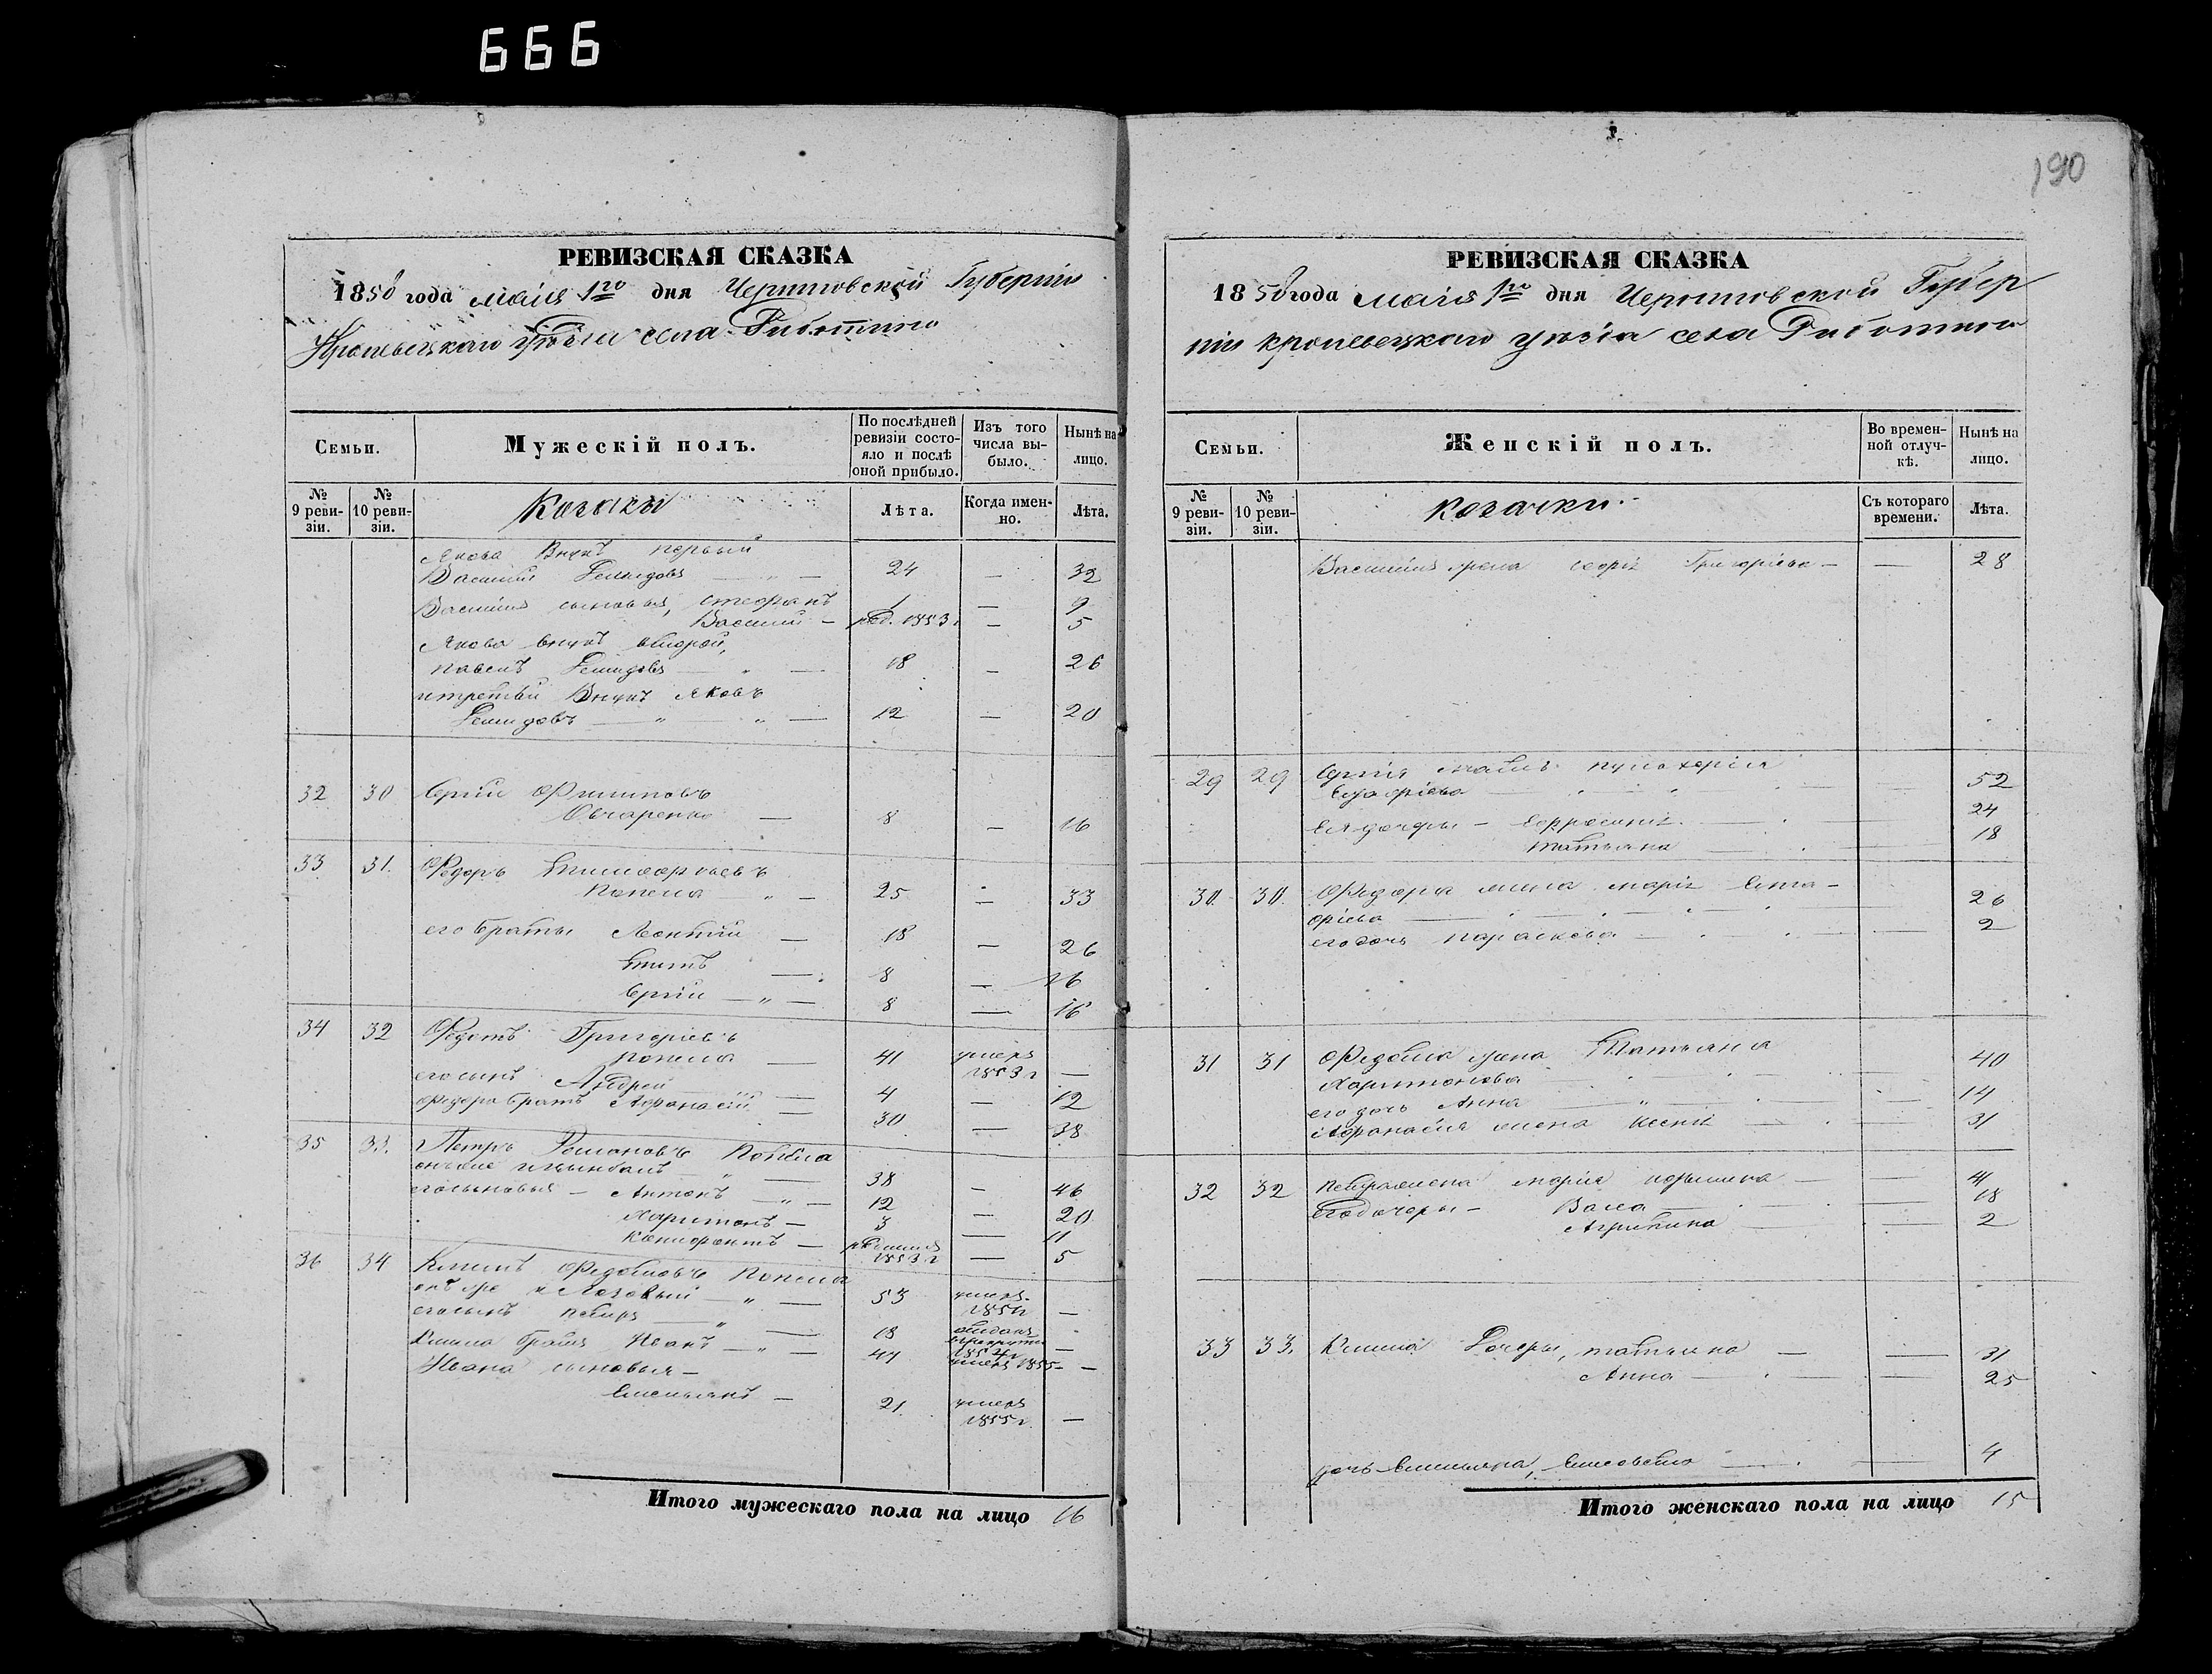 666
190
РЕВИЗСКАЯ СКАЗКА
1858 года маія 1го дня Черниговской Губерніи
Кролевецкаго уѣзда села
Семьи.
Мужескій полъ.
По послѣдней ревизіи состояло и послѣ оной прибыло.
Изъ того числа выбыло.
Нынѣ на лицо.
№ 9 ревизіи.
№ 10 ревизіи.
Козаки
Лѣта.
Когда именно.
Лѣта.
Якова Внукъ первый
Василій Демидовъ — 24 — 32
Василія сыновья, Стефанъ 1 — 9
Василий — род. 1853 г — 5
Якова внукъ второй,
Павелъ Демидовъ — 18 — 26
и третьій Внукъ Яковъ
Демидовъ — " — " — 12 — 20
32 30 Сергій Филиповъ
Овчаренко — 8 — 16
33 31. Федоръ
Попела — " — 25 — 33
его братья Леонтій — 18 — 26
Титъ — 8 — 16
Сергій — " — 8 — 16
34 32 Федотъ Григоріевъ
Попела — 41 умеръ 1853 г —
его сынъ Андрей — 4 — 12
Федора братъ Афанасій — 30 — 38
35 33. Петръ Романовъ Попела
онъ же — " — 38 — 46
его сыновья — Антонъ — " — 12 — 20
Харитонъ — 3 — 11
Ксенофонтъ — родился 1853 г — 5
36 34 Климъ Федотовъ Попела
онъ же и Лозовый — " — 53 умеръ —
его сынъ Петръ — " — 18 отданъ в рекруты 1854 г —
Клима братъ Иванъ — " — умеръ 1855 —
Ивана сыновья —
Емельянъ — 21. умеръ 1855 г. —
Итого мужескаго пола на лицо 16
РЕВИЗСКАЯ СКАЗКА
1858 года маія 1го дня Черниговской Губер
ніи Кролевецкаго уѣзда села
Семьи.
Женскій полъ.
Во временной отлучкѣ.
Нынѣ на лицо.
№ 9 ревизіи.
№ 10 ревизіи.
Козачки
Съ котораго времени.
Лѣта.
Василія жена Григорьева — — 28
29 29 Сергія мать Пульхерія
— 52
Ея дочери — Ефросинія — 24
Татьяна — 18
30. 30. Федора жена Марія
— 26
его дочь Параскева — 2
31 31 Федота жена Татьяна
Харитонова — 40
его дочь Анна — " — 14
Афанасія жена Ксенія — 31
32 32 Петра жена Марія — — 41
Его дочери — Васса — 18
Агрипина — 2
33 33. Клима Дочери, Татьяна — — 31
Анна — — 25
дочь Емельяна, Елисавета — — 4
Итого женскаго пола на лицо 15